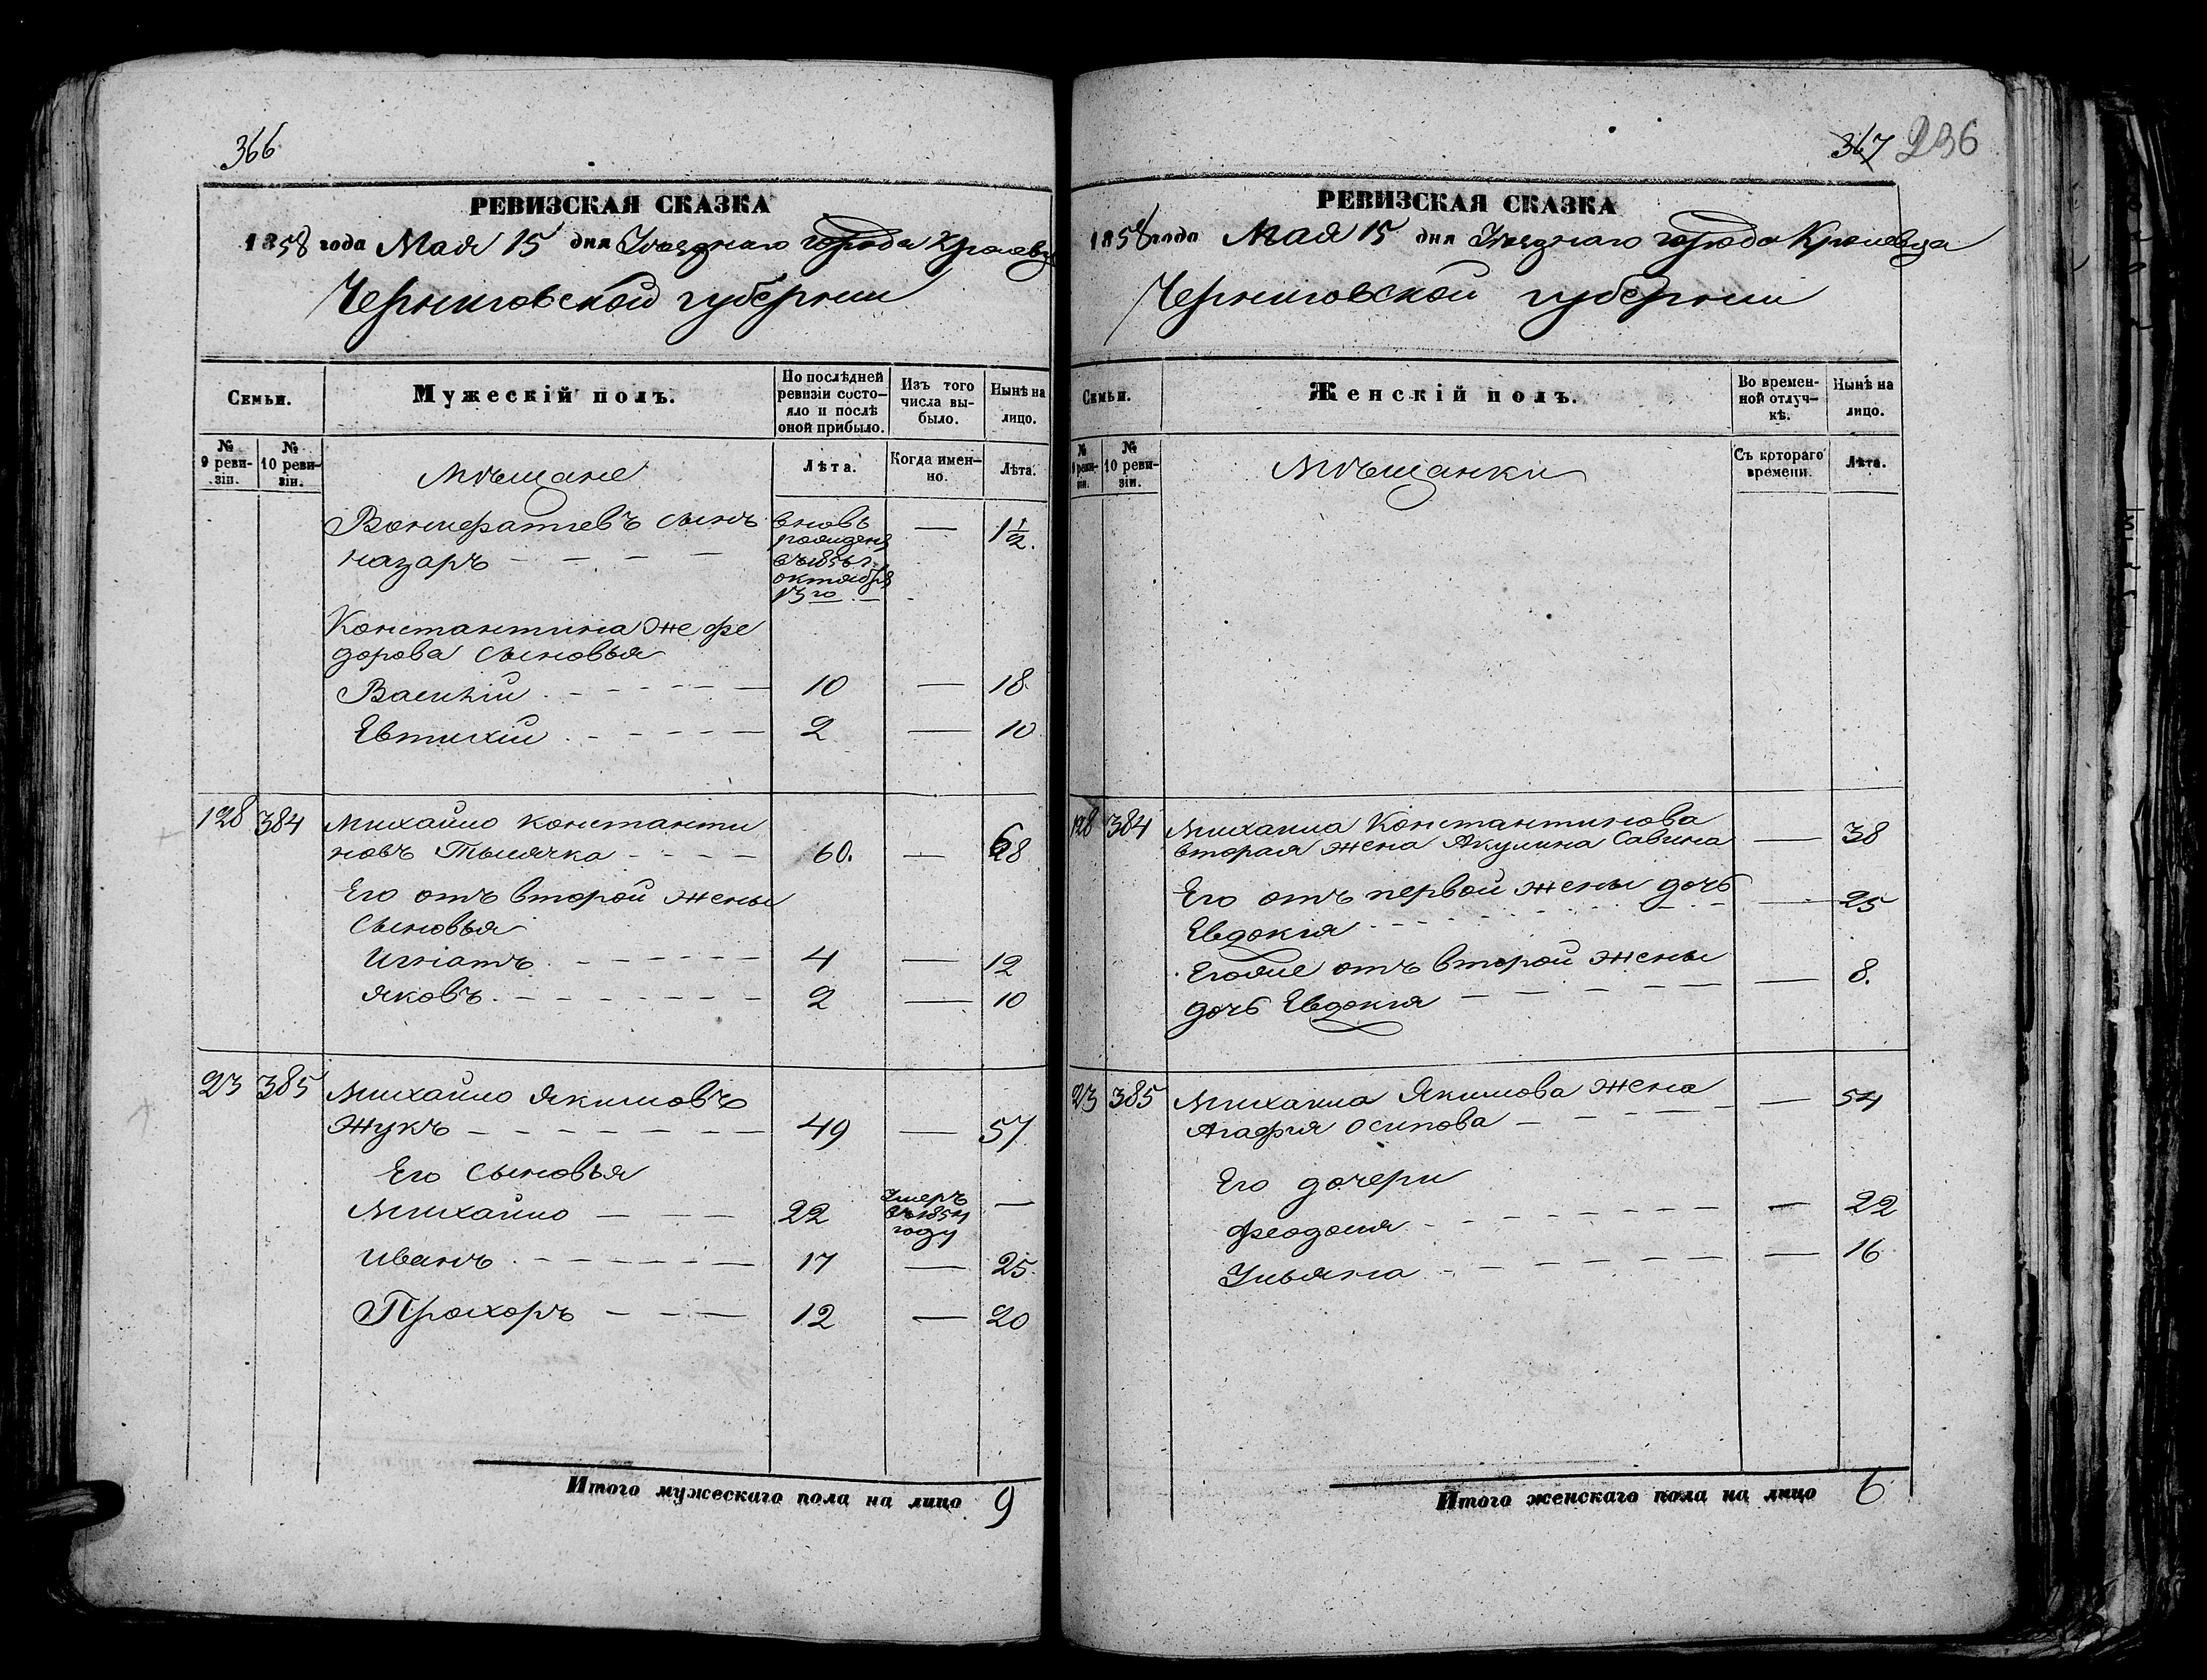 366
РЕВИЗСКАЯ СКАЗКА
1858 года Мая 15 дня Уѣзднаго города Кролевца
Черниговской губерніи
Семьи.
Мужескій полъ.
По послѣдней ревизіи состояло и послѣ оной прибыло.
Изъ того числа выбыло.
Нынѣ на лицо.
№ 9 ревизіи.
№ 10 ревизіи.
Мѣщане
Лѣта.
Когда именно.
Лѣта.
сынъ вновь — 1½.
назаръ рожденъ
въ 1856 г.
октября
13го
Константина же Фе
дорова сыновья
Василій 10 — 18
Евтихій 2 — 10
128 384 Михайло Константи
новъ 60. — 68
Его отъ второй жены
сыновья
Игнатъ 4 — 12
Яковъ 2 — 10
23 385 Михайло Якимовъ
Жукъ 49 — 57
Его сыновья
Михайло 22 Умеръ въ 1854 году —
Иванъ 17 — 25
Прохоръ 12 — 20
Итого мужескаго пола на лицо 9
367 236
РЕВИЗСКАЯ СКАЗКА
1858 года Мая 15 дня Уѣзднаго города Кролевца
Черниговской губерніи
Семьи.
Женскій полъ.
Во временной отлучкѣ.
Нынѣ на лицо.
№ 9 ревизіи.
№ 10 ревизіи.
Мѣщанки
Съ котораго времени.
Лѣта.
128 384 Михаила Константинова
вторая жена Акулина Савина — 38
Его отъ первой жены дочь — 25
Евдокія
Егоже отъ второй жены — 8.
дочь Евдокія
23 385 Михаила Якимова жена — 54
Агафія Осипова
Его дочери
Феодосія — 22
Ульяна — 16
Итого женскаго пола на лицо 6